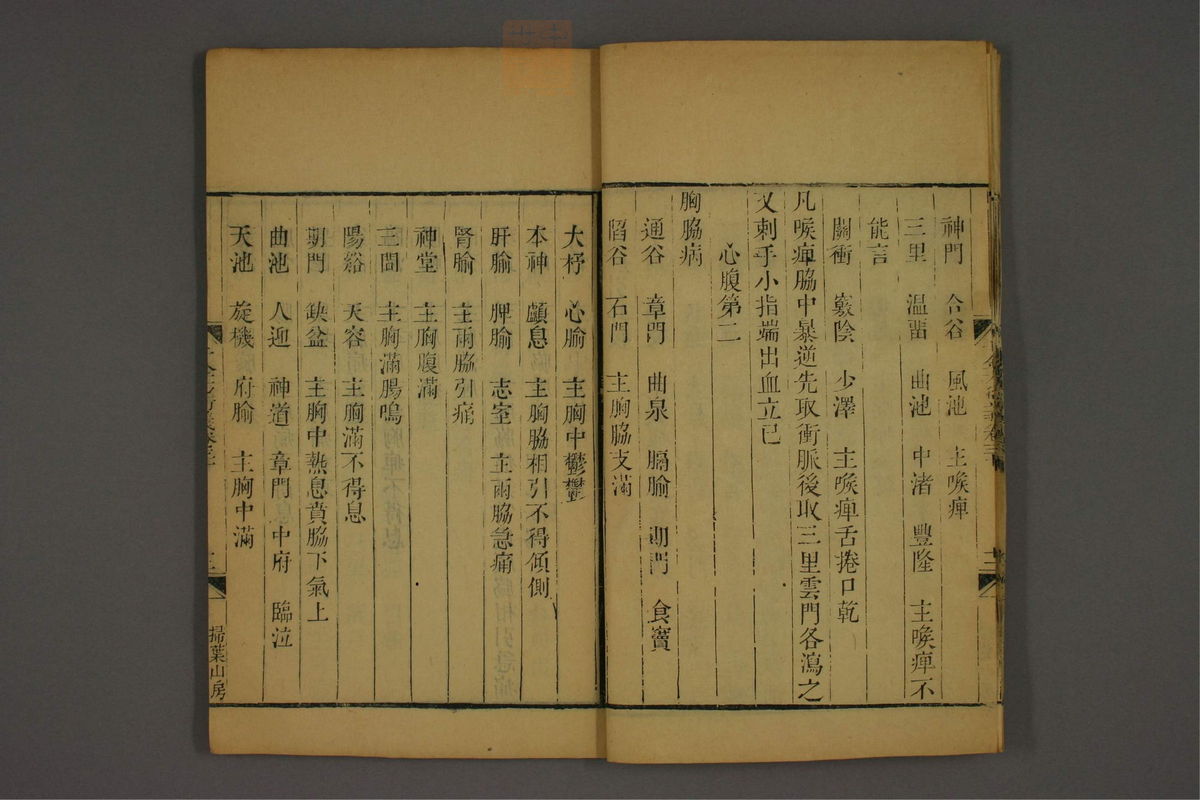 神門 合谷 風池 主喉痺
三里 温畱 曲池 中渚 豐隆 主喉痺不
能言
關衝 竅陰 少澤 主喉痺舌捲口乾
凡喉痺脇中暴逆先取衝脈後取三里雲門各瀉之
又刺手小指端出血立已
心腹第二
胸脇病
通谷 章門 曲泉 膈腧 期門 食竇
陷谷 石門 主胸脇支滿
大杼 心腧 主胸中鬱鬱
本神 顱息 主胸脇相引不得傾側
肝腧 脾腧 志室 主兩脇急痛
腎腧 主兩脇引痛
神堂 主胸腹滿
三間 主胸滿腸鳴
陽谿 天容 主胸滿不得息
期門 缺盆 主胸中熱息賁脇下氣上
曲池 人迎 神道 章門 中府 臨泣
天池 旋機 府腧 主胸中滿
掃葉山房